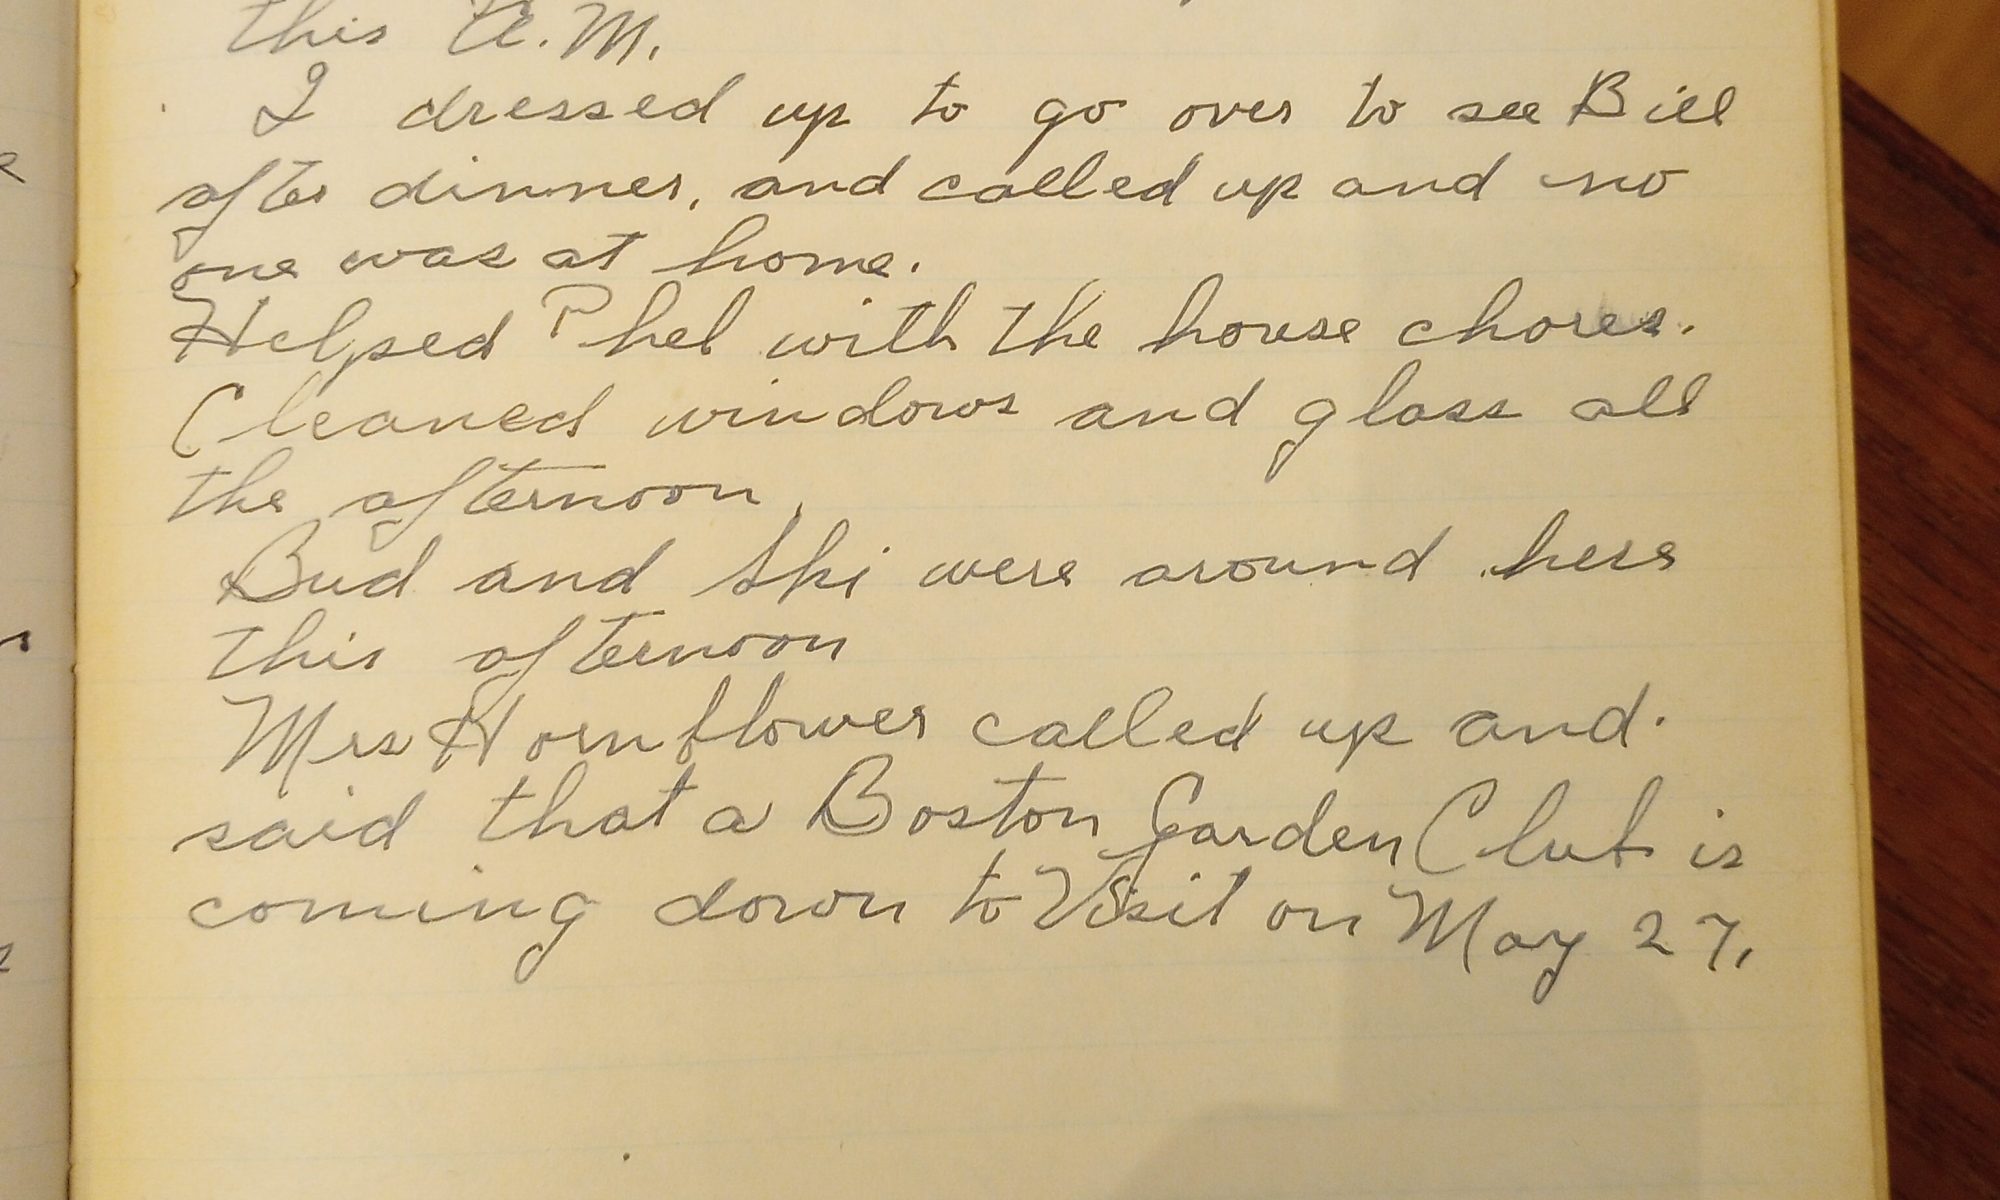 this A.M.
I dressed up to go over to see Bill
after dinner, and called up and no
one was at home.
Helped Phel with the house chores.
Cleaned windows and glass all
the afternoon.
Bud and Ski were around here
this afternoon
Mrs Hornflower called up and
said that a Boston Garden Club is
coming down to Visit on May 27.